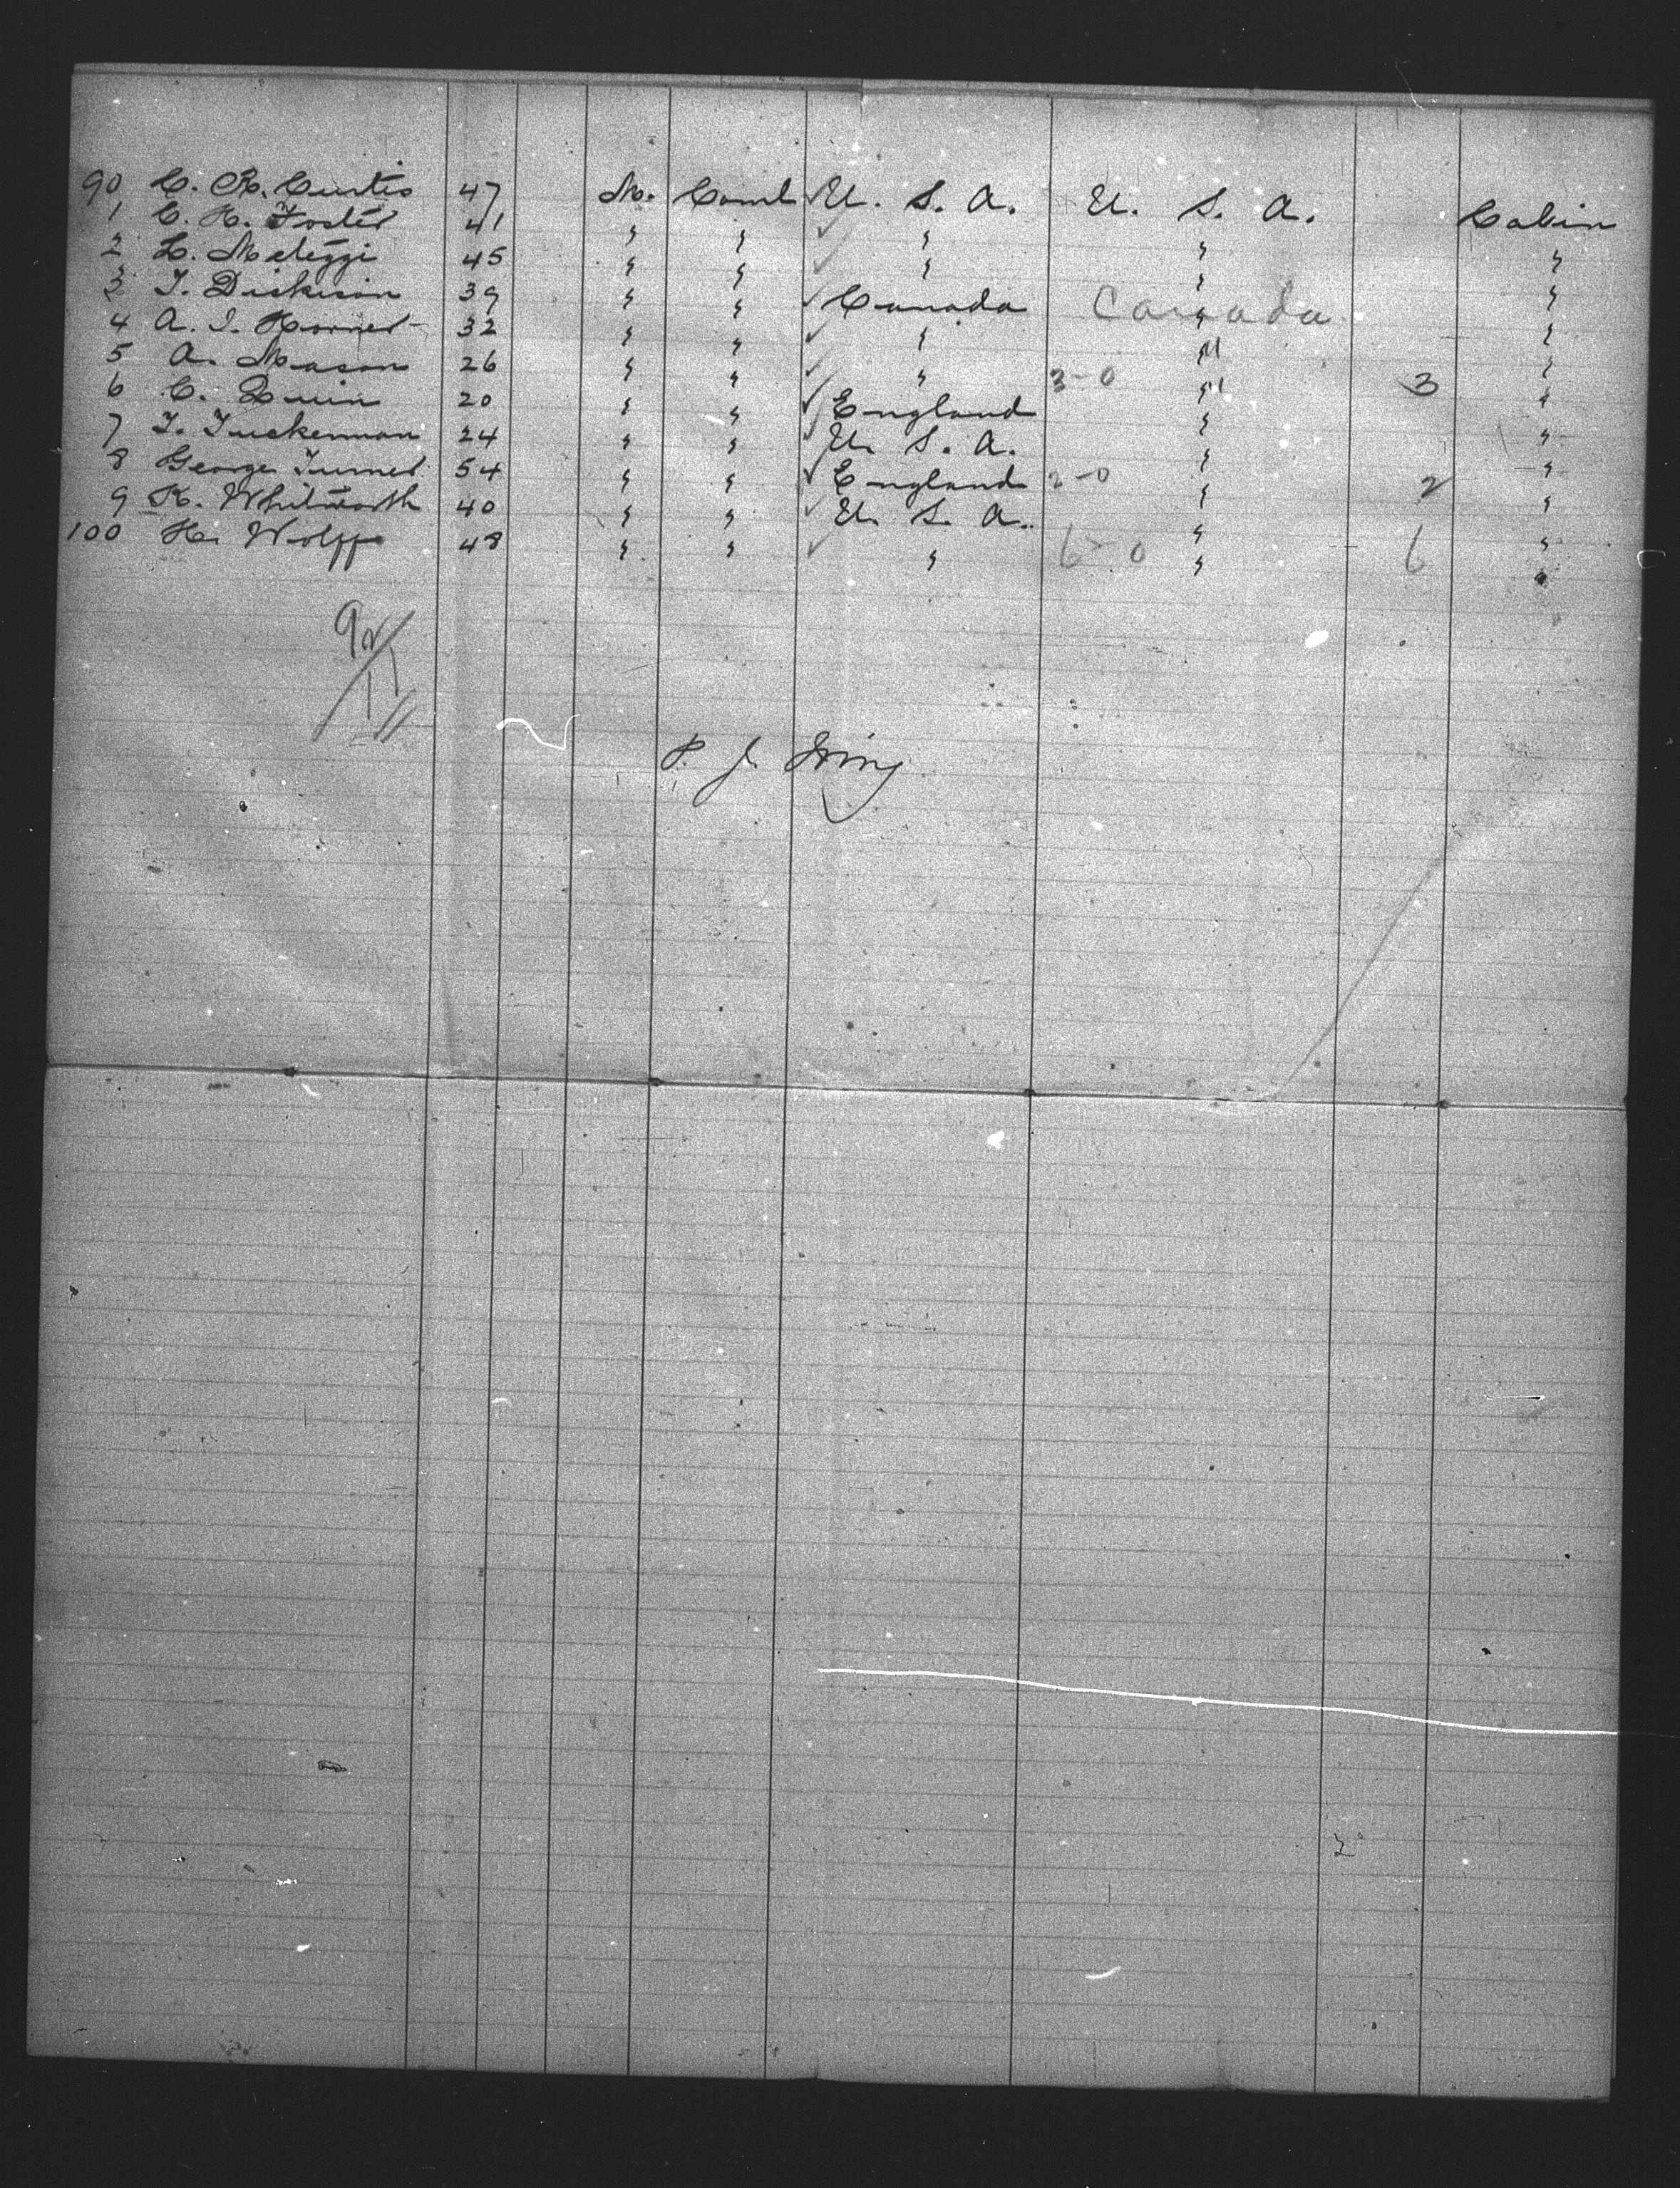 90 C. R. Curtis 47 M. Coml U. S. A. U. S. A. Cabin
1 C. H. Foster 41 " " " " "
2 L. Meleggi 45 " " " " "
3 T. Dickison 39 " " Canada Canada " "
4 A. I. Horner 32 " " " " "
5 A. Mason 26 " " " 3-0 " 3 "
6 C. Quin 20 " " England " "
7 T. Tuckerman 24 " " U. S. A. " "
8 George Turner 54 " " England 2-0 " 2 "
9 K. Whitworth 40 " " U. S. A. " "
100 H. Wolff 48 " " " 6-0 " 6 "
P. J.